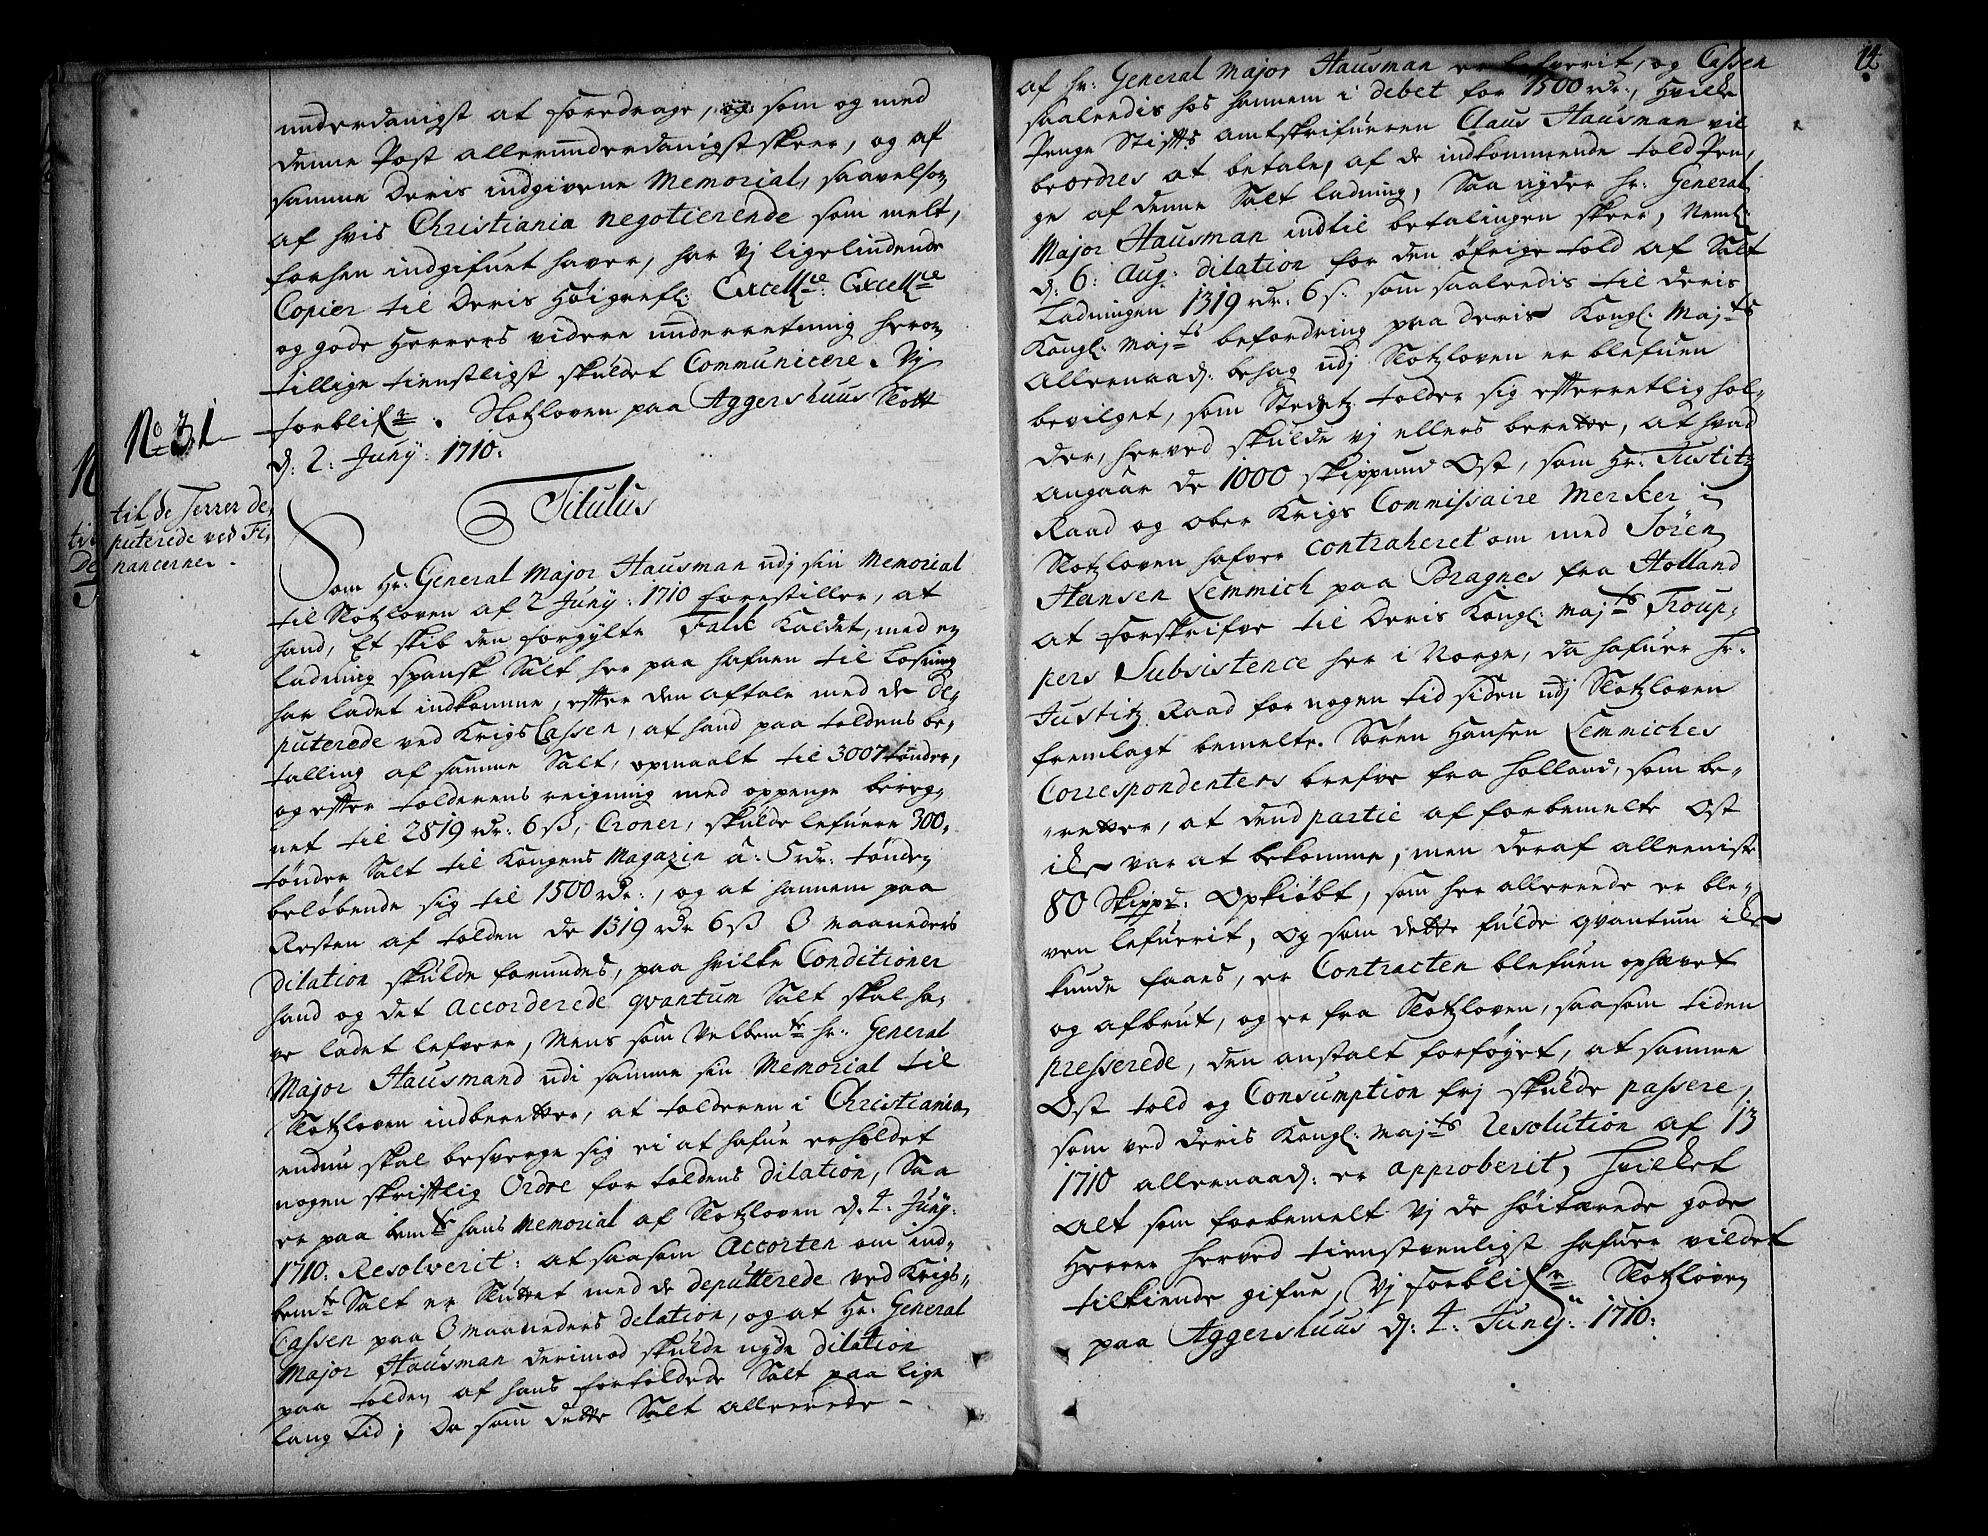 underdanigst at foredrage, og som og med
denne Post allerunderdanigst skeer, og af
samme Deris indgivene Memorial, saavelsom
af hvis Christiania negotierende som melt,
forhen indgifuet hafver, har vj ligelindende
Copier til Deris Høigrefl: Excellce: Excellce
og gode Herrers videre underretning herom
tillige tienstligst skuldet Communicere. Vj
forblifr. Slotzloven paa Aggershuus Slott
d: 2: Junÿ: 1710:
No 31
til de Herrer De,
puterede ved Fi,
nancerne.
Titulus
Som Hr: General Major Hausman udj sin Memorial
til Slotzloven af 2 Junÿ: 1710 forestiller, at
hand, Et skib den forgylte Falk kaldet, med en
ladning spansk Salt her paa hafnen til Losning
har ladet indkomme, effter den aftale med de De,
puterede ved Krigs Cassen, at hand paa toldens be,
talling af samme Salt, opmaalt til 3007 tønder,
og effter tolderens reigning med oppenge bereg,
net til 2819 rdr: 6 ß, Croner, skulde lefuere 300,
tønder Salt til Kongens Magazin a: 5 rdr: tønden
beløbende sig til 1500 rdr:, og at hannem paa
Resten af tolden de 1319 rdr 6 ß 3 maaneders
dilation skulde forundes, paa hvilke Conditioner
hand og det accorderede qvantum Salt skal ha,
ve ladet lefvere, Mens som Velbemte hr: General
Major Hausmand udi samme sin Memorial til
Slotzloven indberetter, at tolderen i Christiania
endnu skal besverge sig ei at hafue erholdet
nogen skrifftlig Ordre for toldens dilation, Saa
er paa bemte hans Memorial af Slotzloven d: 4: Junÿ:
1710: Resolverit: at saasom Accorten om ind,
bemte Salt er Sluttet med de deputterede ved Krigs,
Cassen paa 3 maaneders delation, og at Hr: General
Major Hausman derimod skulde nyde dilation
paa tolden af hans fortoldede Salt paa lige
lang tid; Da som dette Salt allerede
14
af hr: General Major Hausman er lefverit, og Cassen
saaledis hos hannem i debet for 1500 rdr:, Hvilke
Penge Stiffts amtskrifueren Claus Hausman vil
beordres at betale, af de indkommende told Pen,
ge af denne Salt ladning, Saa nyder hr: General
Major Hausman indtil betalingen skeer, Neml:
d: 6: Aug: dilation for den øfrige told af Salt
Ladningen 1319 rdr: 6 ß: som saaledis til deris
Kongl: Majts befordring paa deris Kongl: Majts
Allernaad: behag udj Slotzloven er blefuen
bevilget, som Stedetz tolder sig effterretlig hol,
der, herved skulde vj ellers berette, at hvad
angaar de 1000 skippund Ost, som Hr: Justitz
Raad og ober Krigs Commissaire Merker i
Slotzloven hafver contraheret om med Sören
Hansen Lemmich paa Bragnes fra Holland
at forskrifve til Deris Kongl: Majts Troup,
pers Subsistence her i Norge, da hafuer Hr:
Justitz Raad for nogen tid siden udj Slotzloven
fremlagt bemelte. Søren Hansen Lemmiches
Correspondenters brefve fra Holland, som be,
retter, at dend partie af forbemelte Ost
icke var at bekomme, men deraf alleeniste
80 Skippd: Opkiøbt, som her allerede er ble,
ven lefuerit, Og som dette fulde qvantum icke
kunde faaes, er Contracten blefuen ophævet
og afbrut, og er fra Slotzloven, saasom tiden
presserede, den anstalt forføyet, at samme
Ost told og Consumption frj skulde passere,
som ved Deris Kongl: Majts Resolution af 13
1710 allernaad: er approberit, Hvilket
Alt som forbemelt Vj de høitærede gode
Herrer herved tienstvenligst hafuer vildet
tilkiende gifue, Vj forblifr Slotzloven
paa Aggershuus d: 4: Junÿ: 1710: